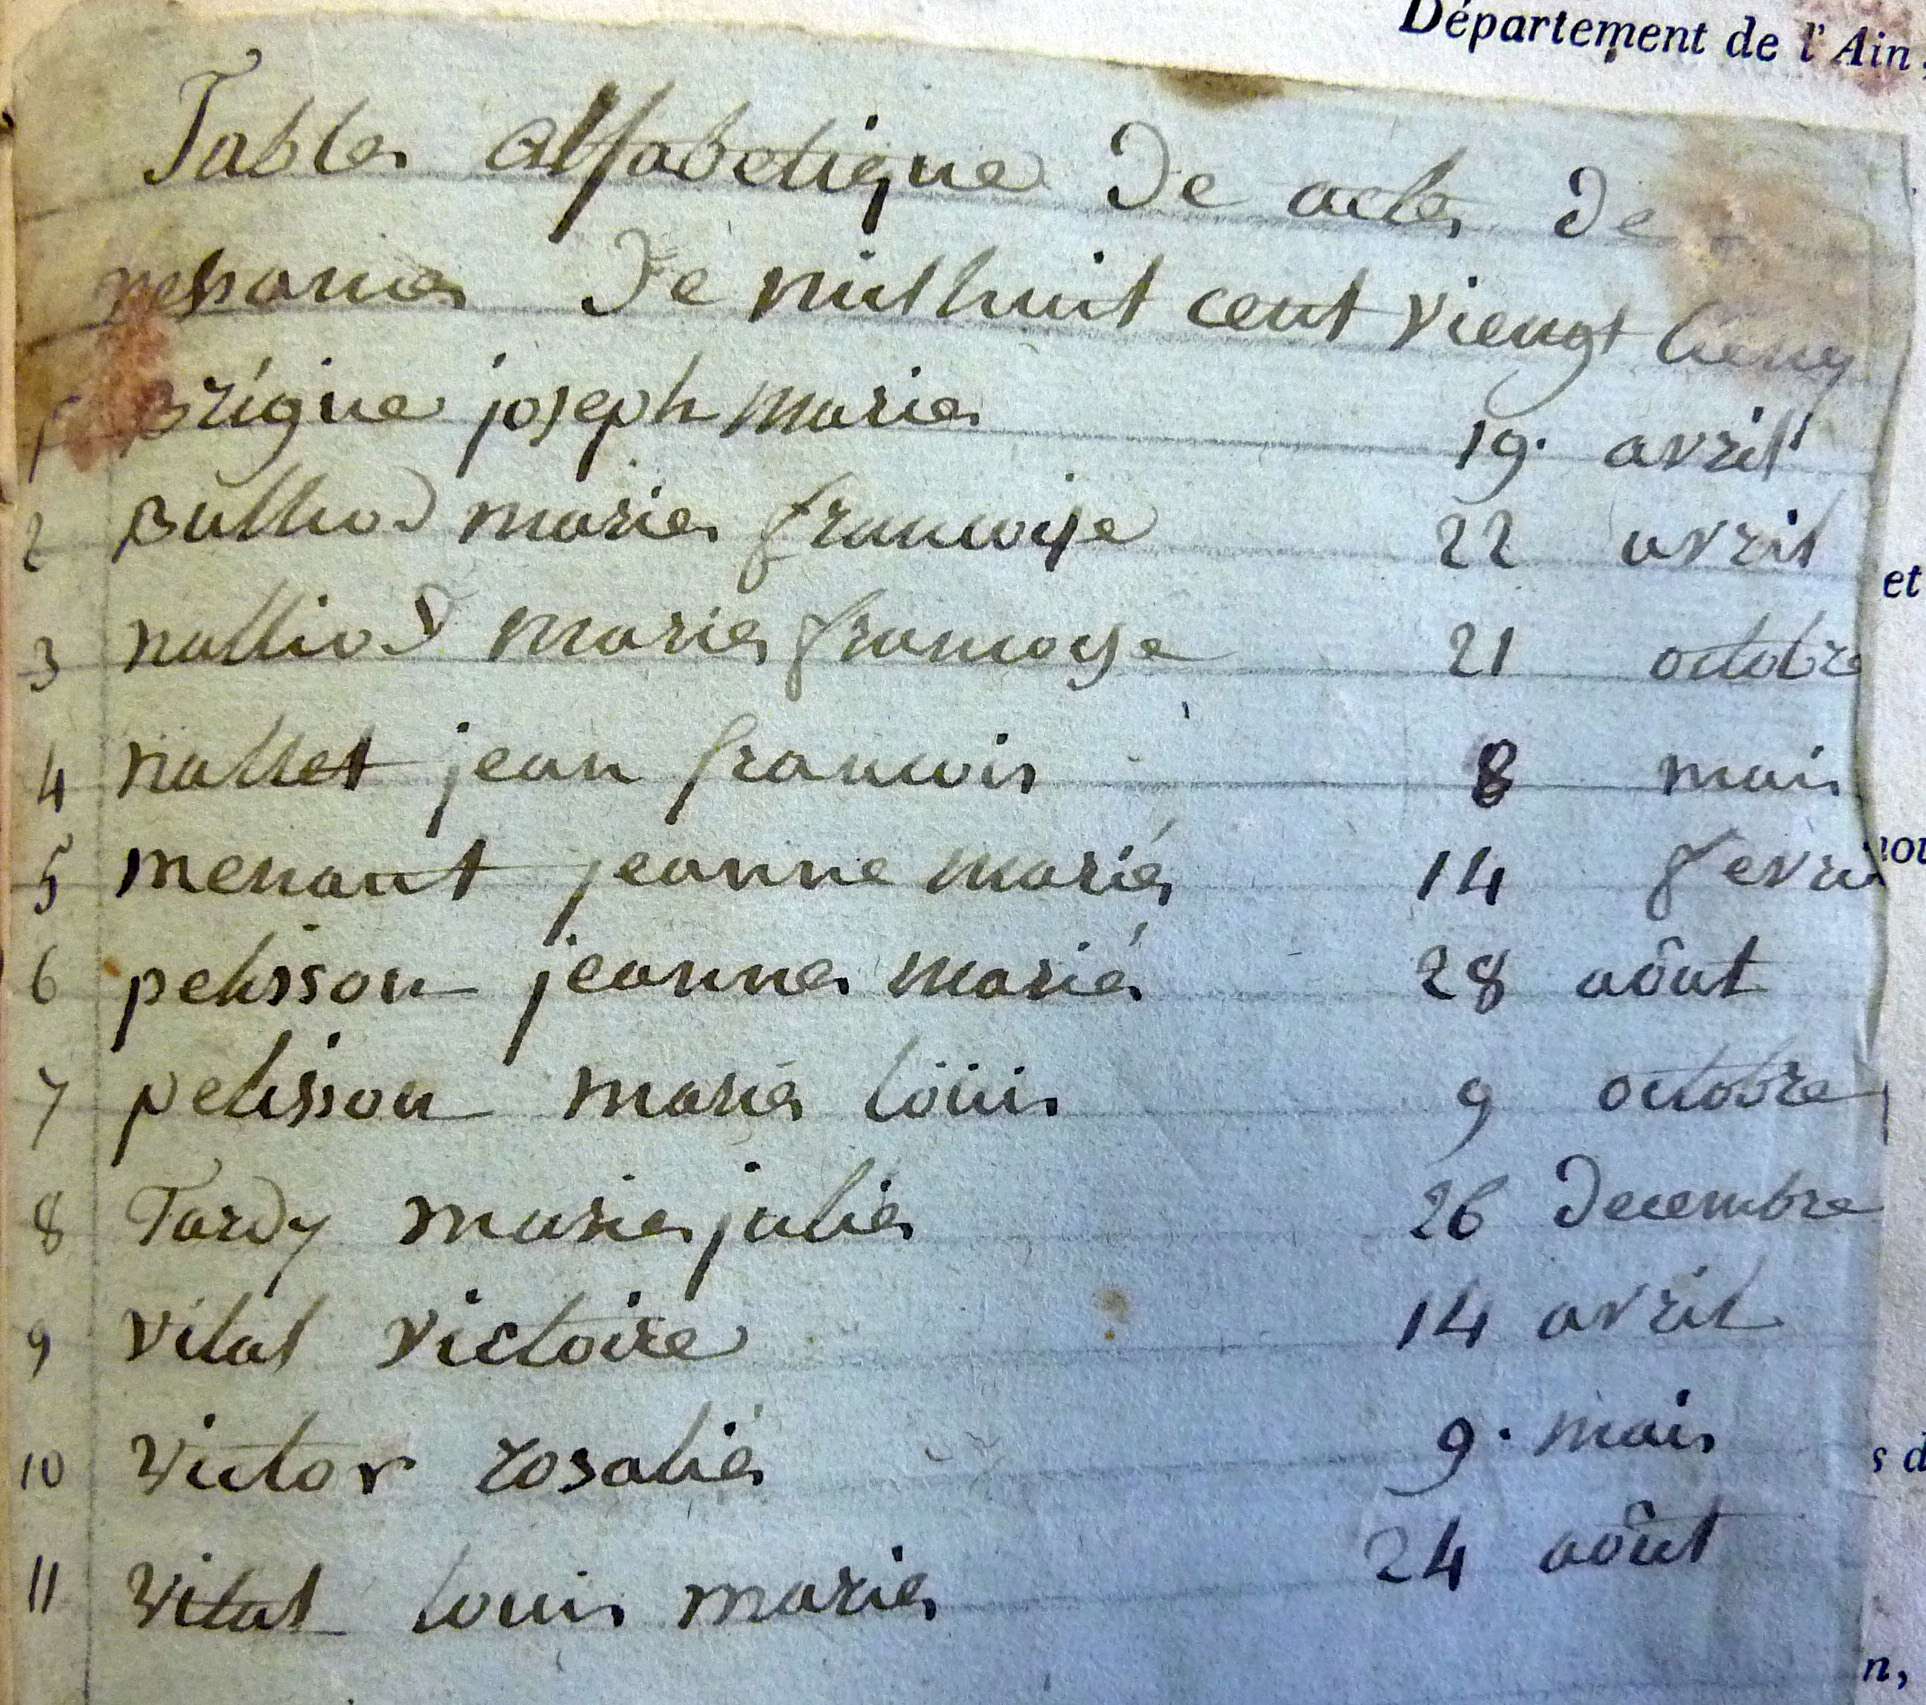 Département de l'Ain.
Tables alfabetique de actes de
de mil huit cent viengt
1 Brigue joseph marie 19. avril
2 Bulliod marie francoise 22 avril
et
3 nalliod marie francoise 21 octobre
4 nallet jean francois 8 mais
5 menant jeanne marie 14 fevri
6 pelisson jeanne marie 28 août
7 pelisson marie loüis 9 octobre
8 Tardy marie julie 26 decembre
9 vital victoire 14 avril
10 victor rosalie 9. mais
s d
11 vital louis marie 24 août
n,